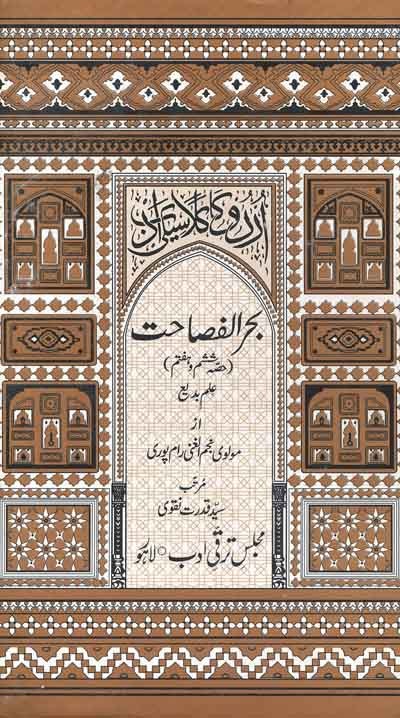 اُردو کا کلاسیکی ادب
بحر الفصاحت
(حصہ ششم و ہفتم)
علم بدیع
از
مولوی نجم الغنی رام پوری
مرتب
سیّد قدرت نقوی
مجلس ترقی ادب ○ لاہور